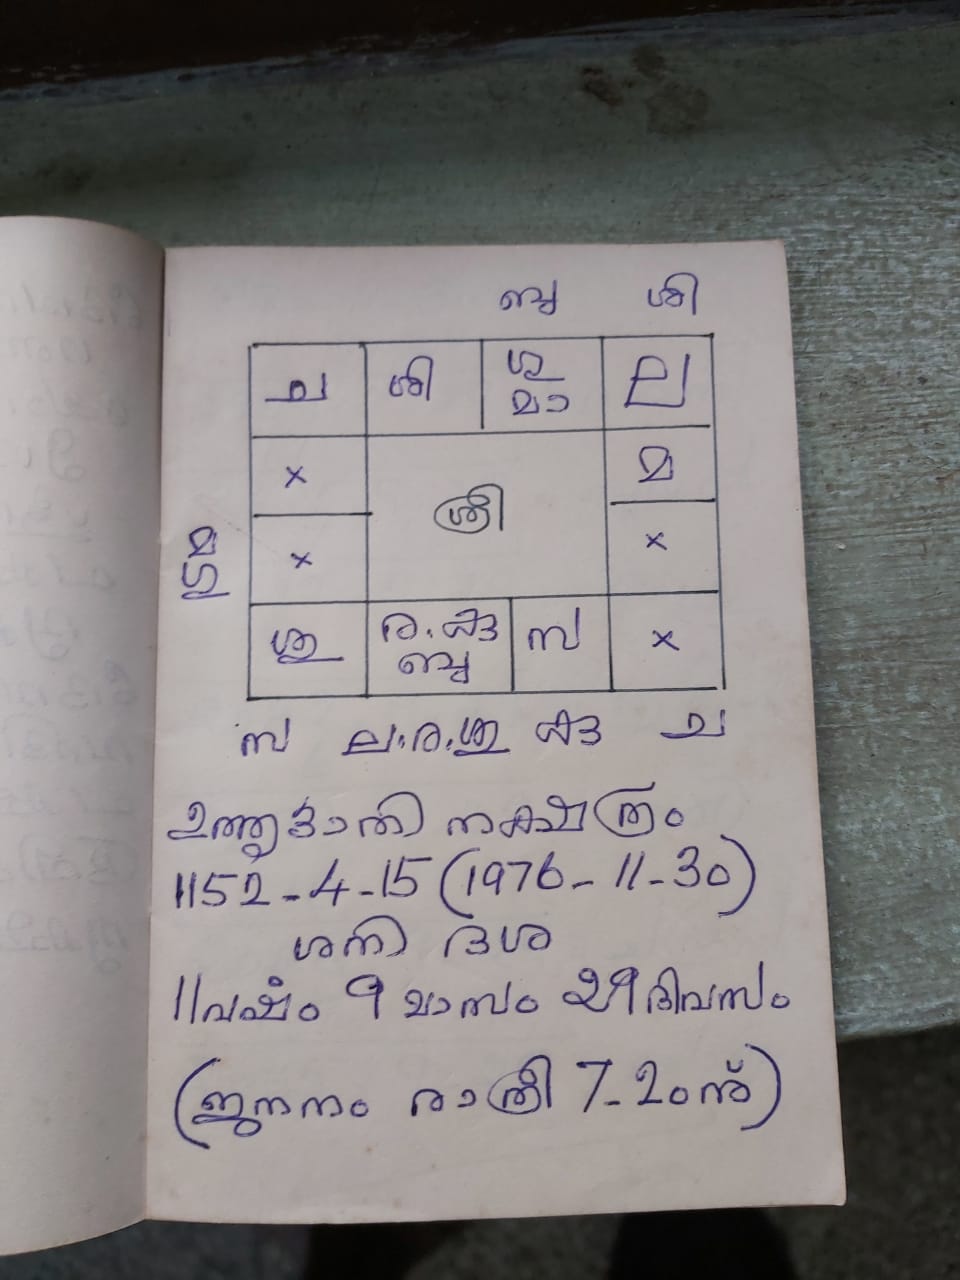 ബു ശി
ച ശി ശു ല
മാ
x മ
ശ്രീ
x x
മ
ശു ര. കു സ x
ബു
സ ല.ര.ശു കു ച
ഉത്തൃട്ടാതി നക്ഷത്രം
1152-4-15 (1976-11-30)
ശനി ദശ
11 വർഷം 9 മാസം 29 ദിവസം
(ജനനം രാത്രി 7-20ന്)